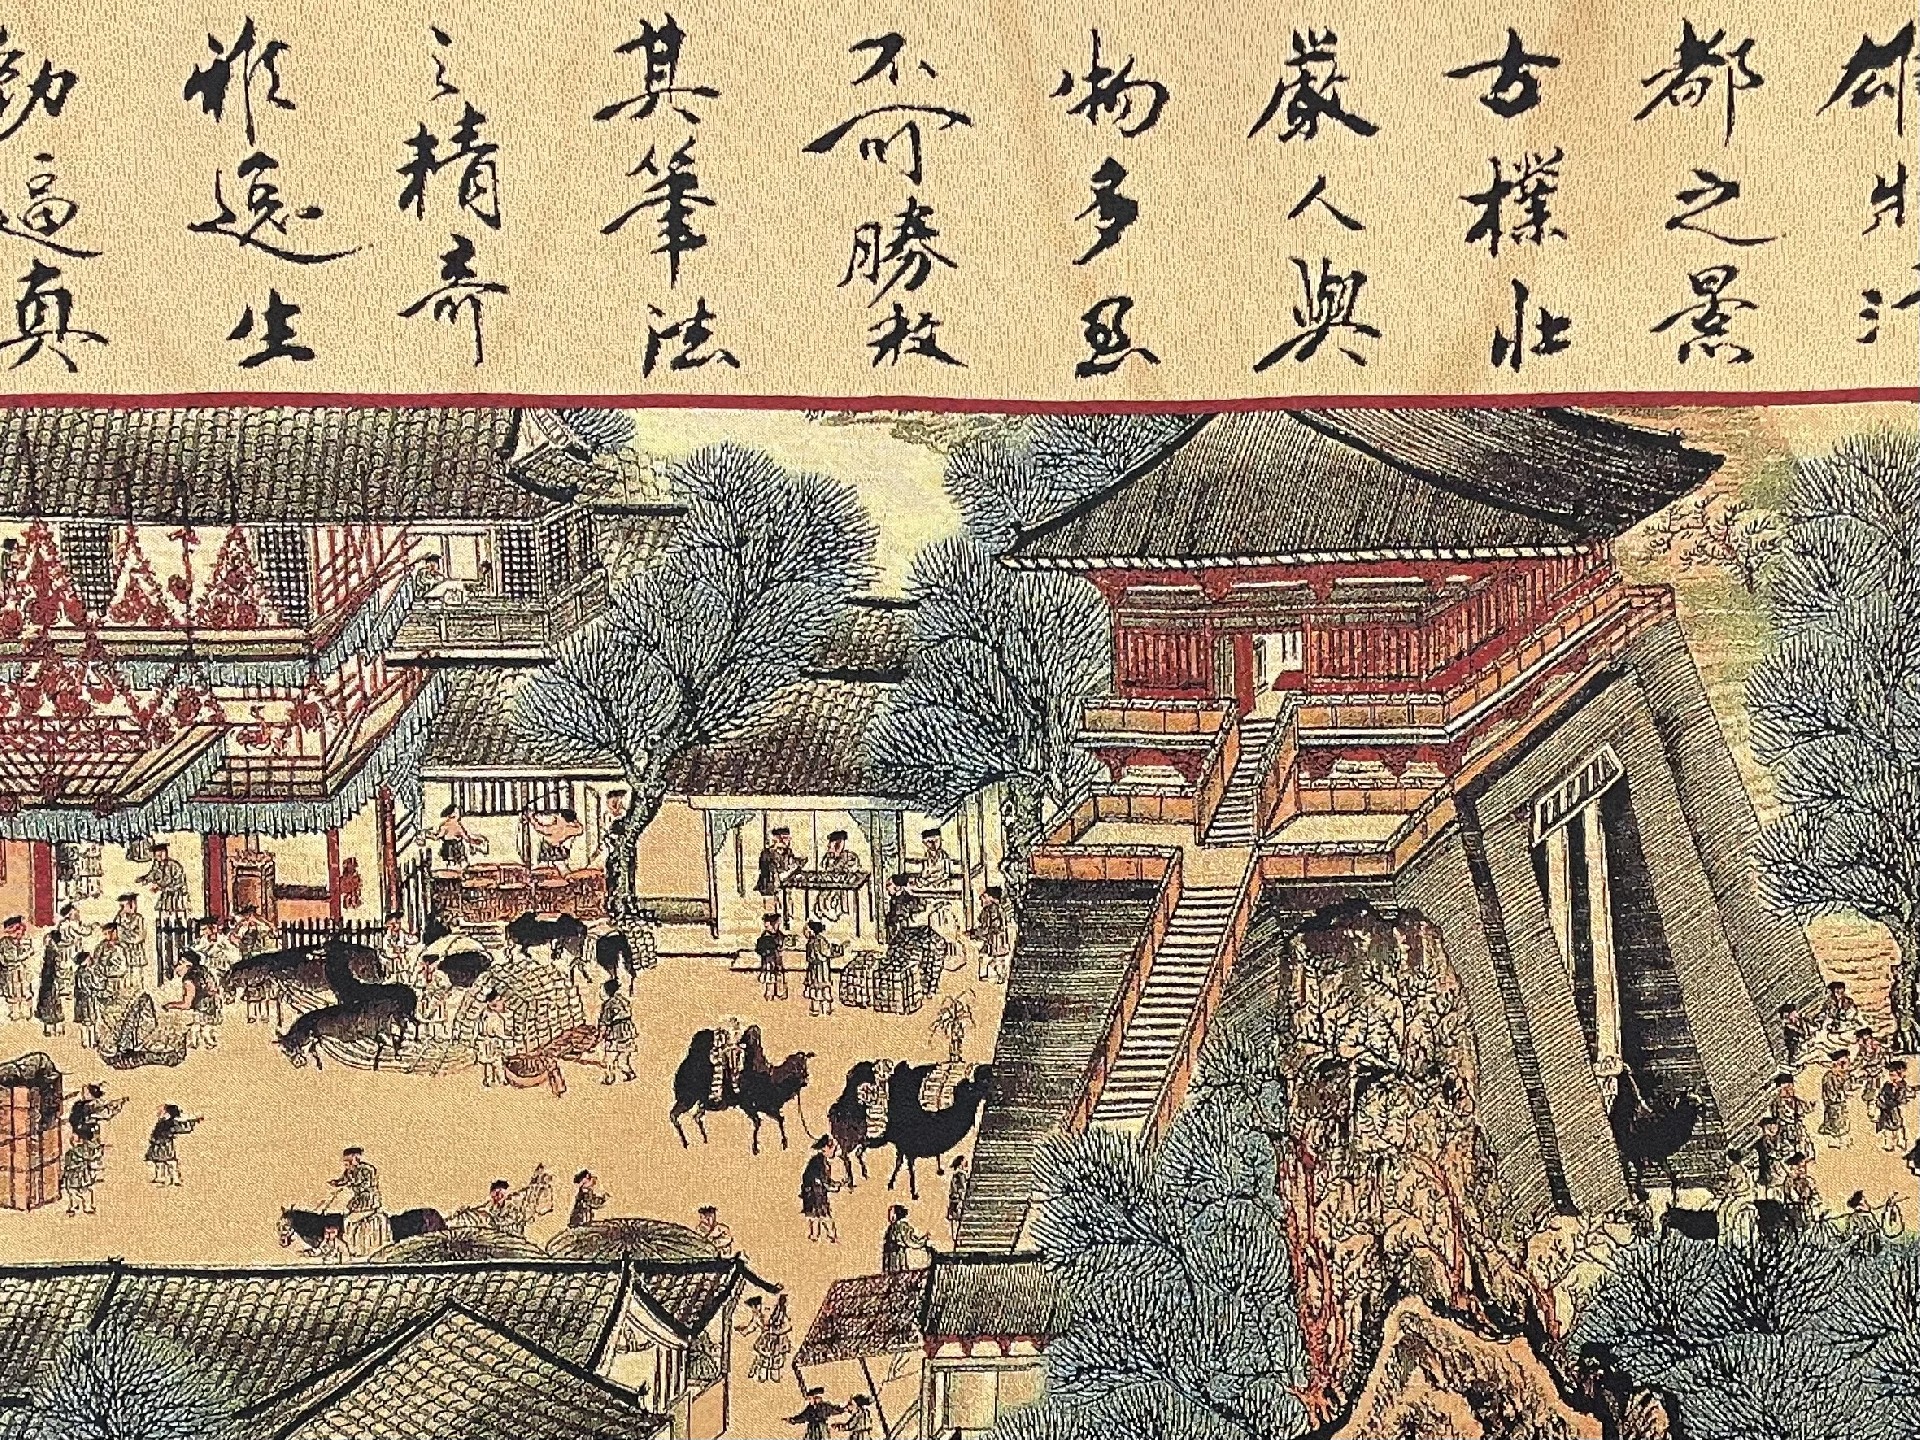 雄
都之景
古樸壯
嚴人與
物多
不可勝數
其筆法
之精奇
雅逸生
動逼真